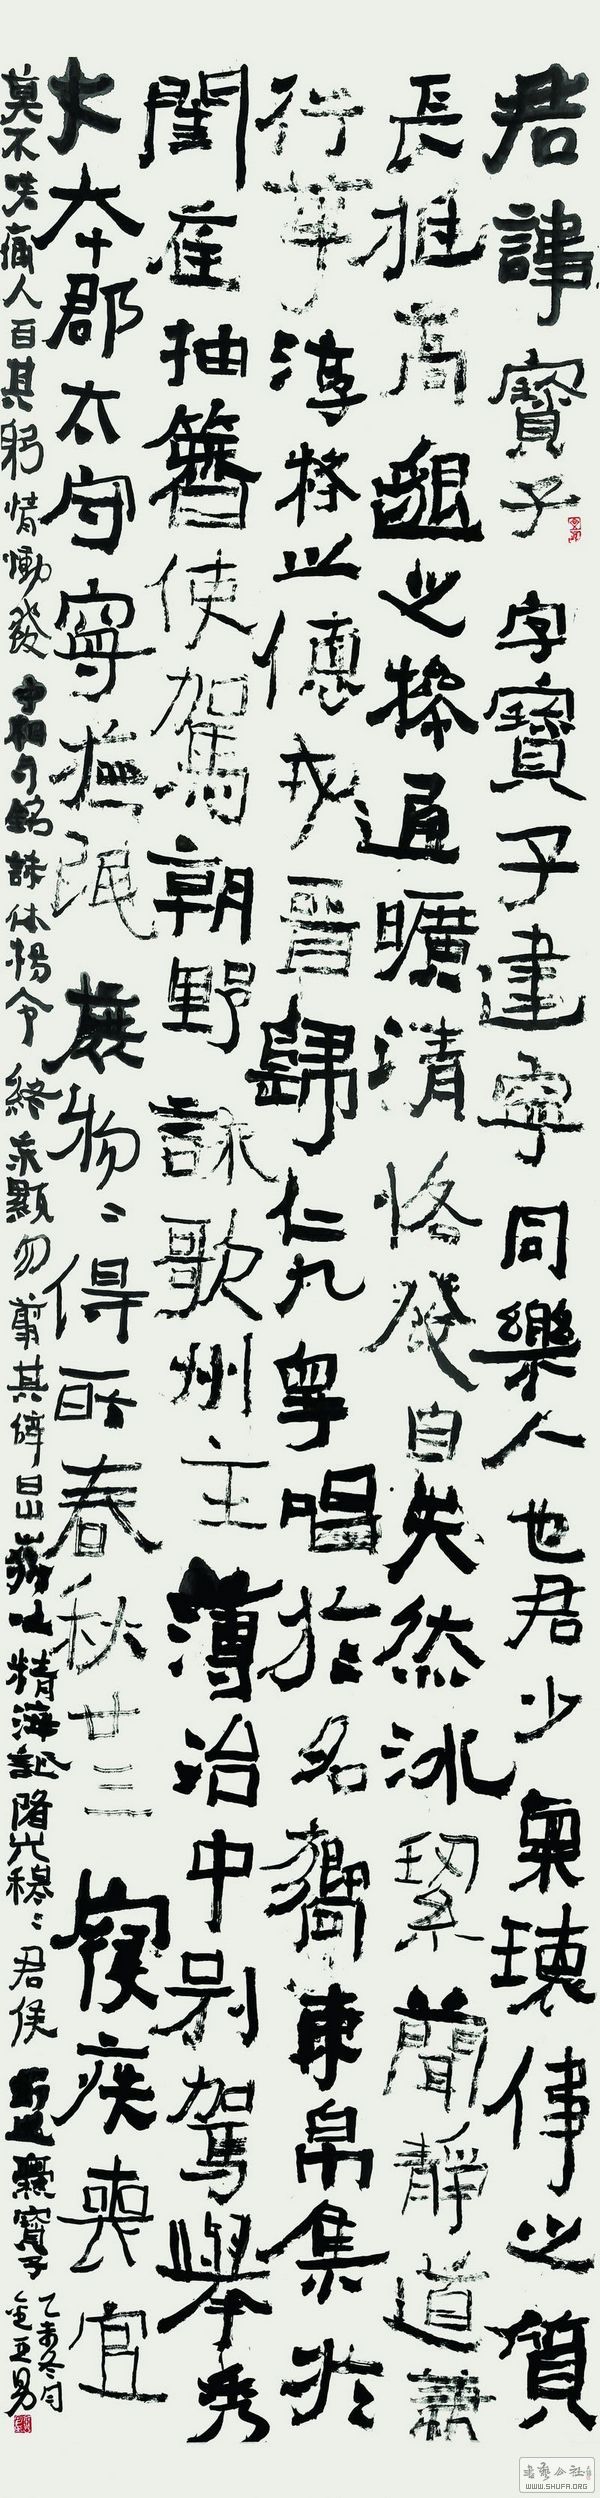 君諱寶子字寶子建寧同樂人也君少稟瓌偉之質
長挺高邈之操通曠清恪發自天然冰絜簡靜道兼
行葦淳粹之德戎晉歸仁九皋唱於名嚮束帛集於
閨庭抽簪使駕朝野詠歌州主簿治中別駕舉秀
才本郡太守寧撫氓庶物〻得所春秋廿三寢疾喪官
莫不嗟痛人百其躬情慟發中相與銘誄休揚令終永顯勿翦其辭曰山嶽吐精海誕降光穆〻君侯 爨寶子
乙未冬月
WWW.SHUFA.ORG